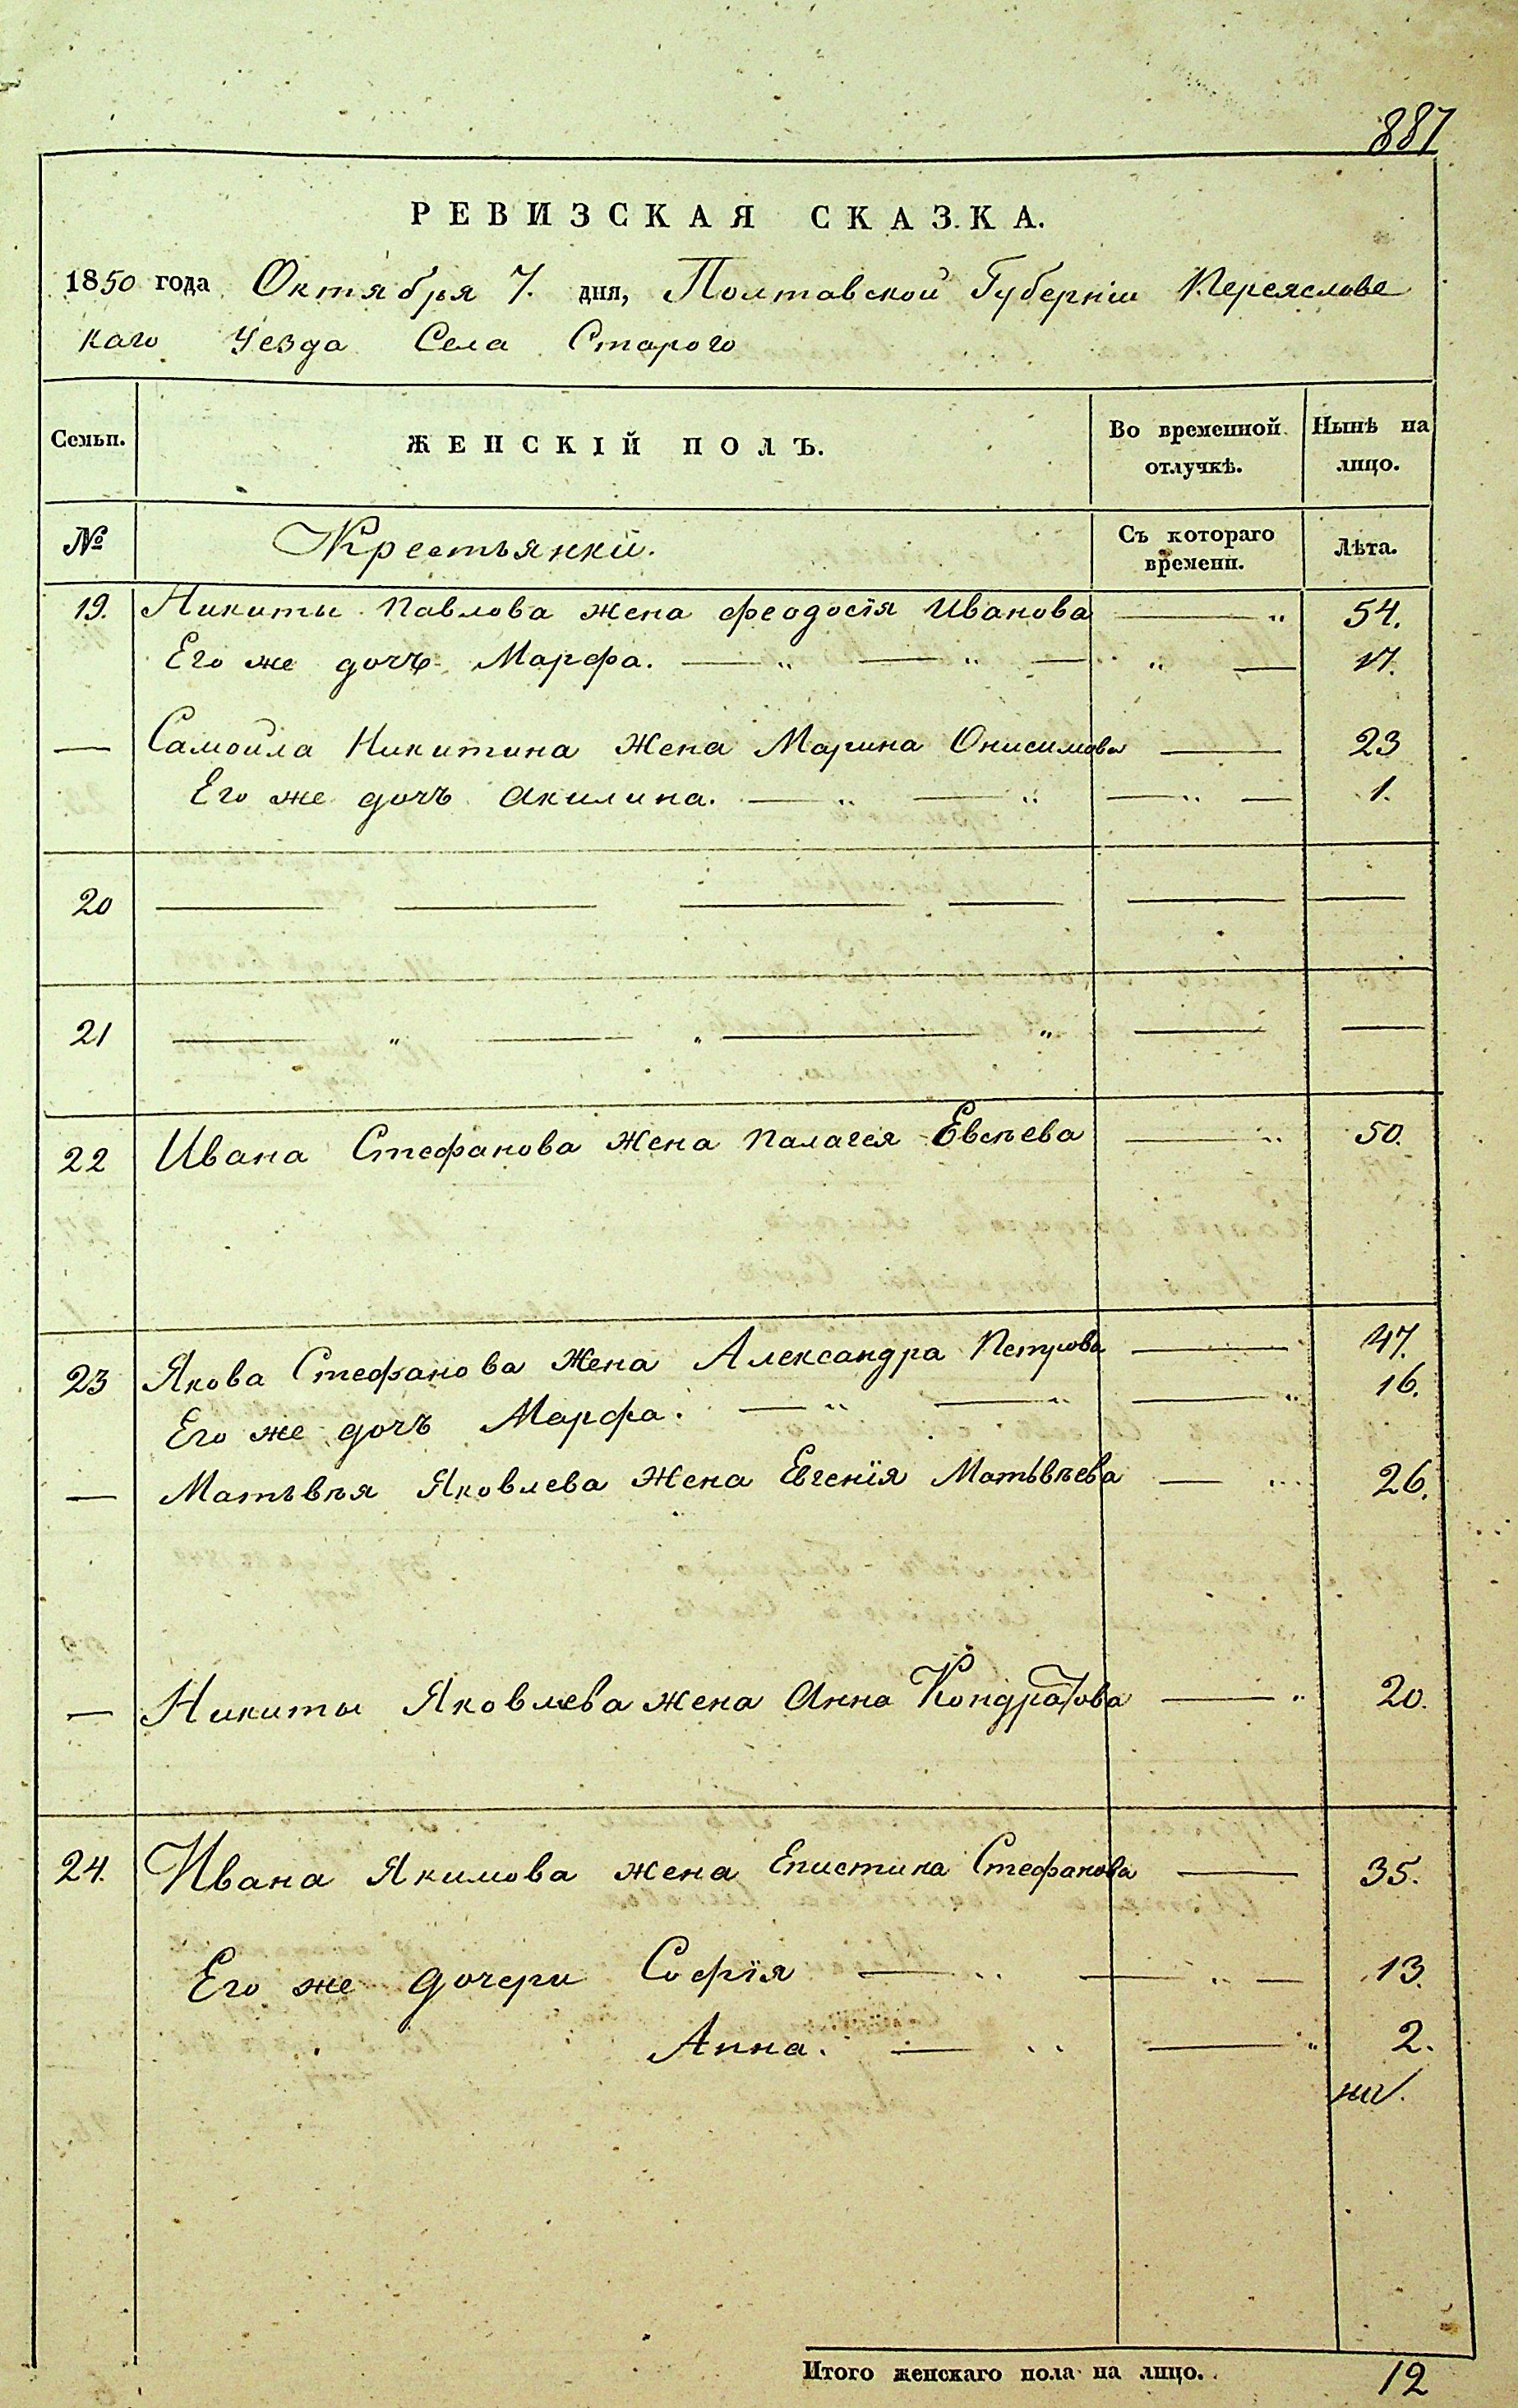 887
РЕВИЗСКАЯ СКАЗКА.
1850 года Октября 7. дня, Полтавской Губерніи Переяслове
каго Уезда Села Старого
Семьи. ЖЕНСКІЙ ПОЛЪ. Во временной отлучкѣ. Нынѣ на лицо.
№ Крестьянки. Съ котораго времени. Лѣта.
19. Никиты Павлова жена Феодосія Иванова — „ 54.
Его же дочь Марфа. — „ — „ — „ — 17.
— Самойла Никитина жена Марина Онисимова — 23
Его же дочь Акилина. — „ — „ — „ — 1.
20 — — — — — —
21 — „ — „ — „ — —
22 Ивана Стефанова жена Палагея Евсѣева — „ 50.
23 Якова Стефанова жена Александра Петрова — 47.
Его же дочь Марфа. — „ — „ — „ 16.
— Матьвѣя Яковлева жена Евгенія Матьвѣева — „ 26.
— Никиты Яковлева жена Анна Кондратова — „ 20.
24. Ивана Якимова жена Епистина Стефанова — 35.
Его же дочери Софія — „ — „ — 13.
Анна. — „ — „ 2.
Итого женскаго пола на лицо. 12